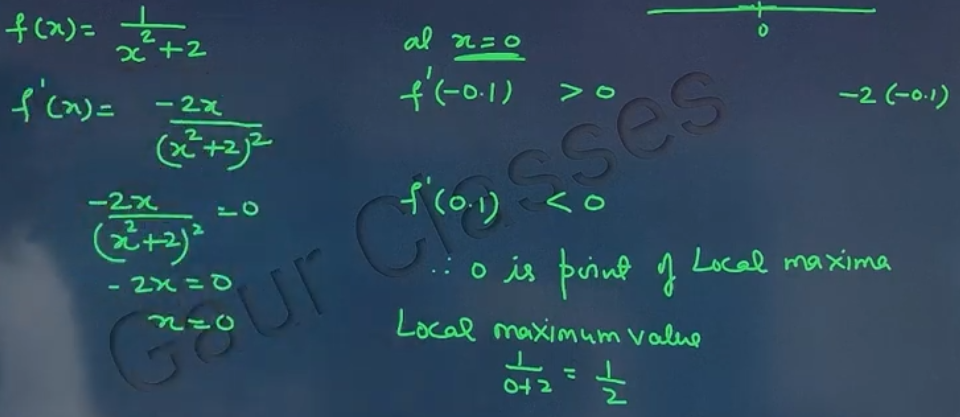 f(x) = 1/(x²+2)
f'(x) = -2x/(x²+2)²
-2x/(x²+2)² = 0
-2x = 0
x = 0
0
at x = 0
f'(-0.1) > 0
-2(-0.1)
f'(0.1) < 0
∴ 0 is point of Local maxima
Local maximum value
1/(0+2) = 1/2
Gaur Classes